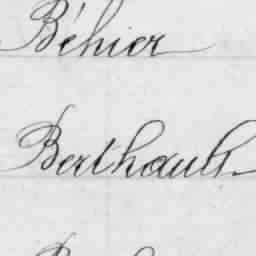 Béhier
Berthault